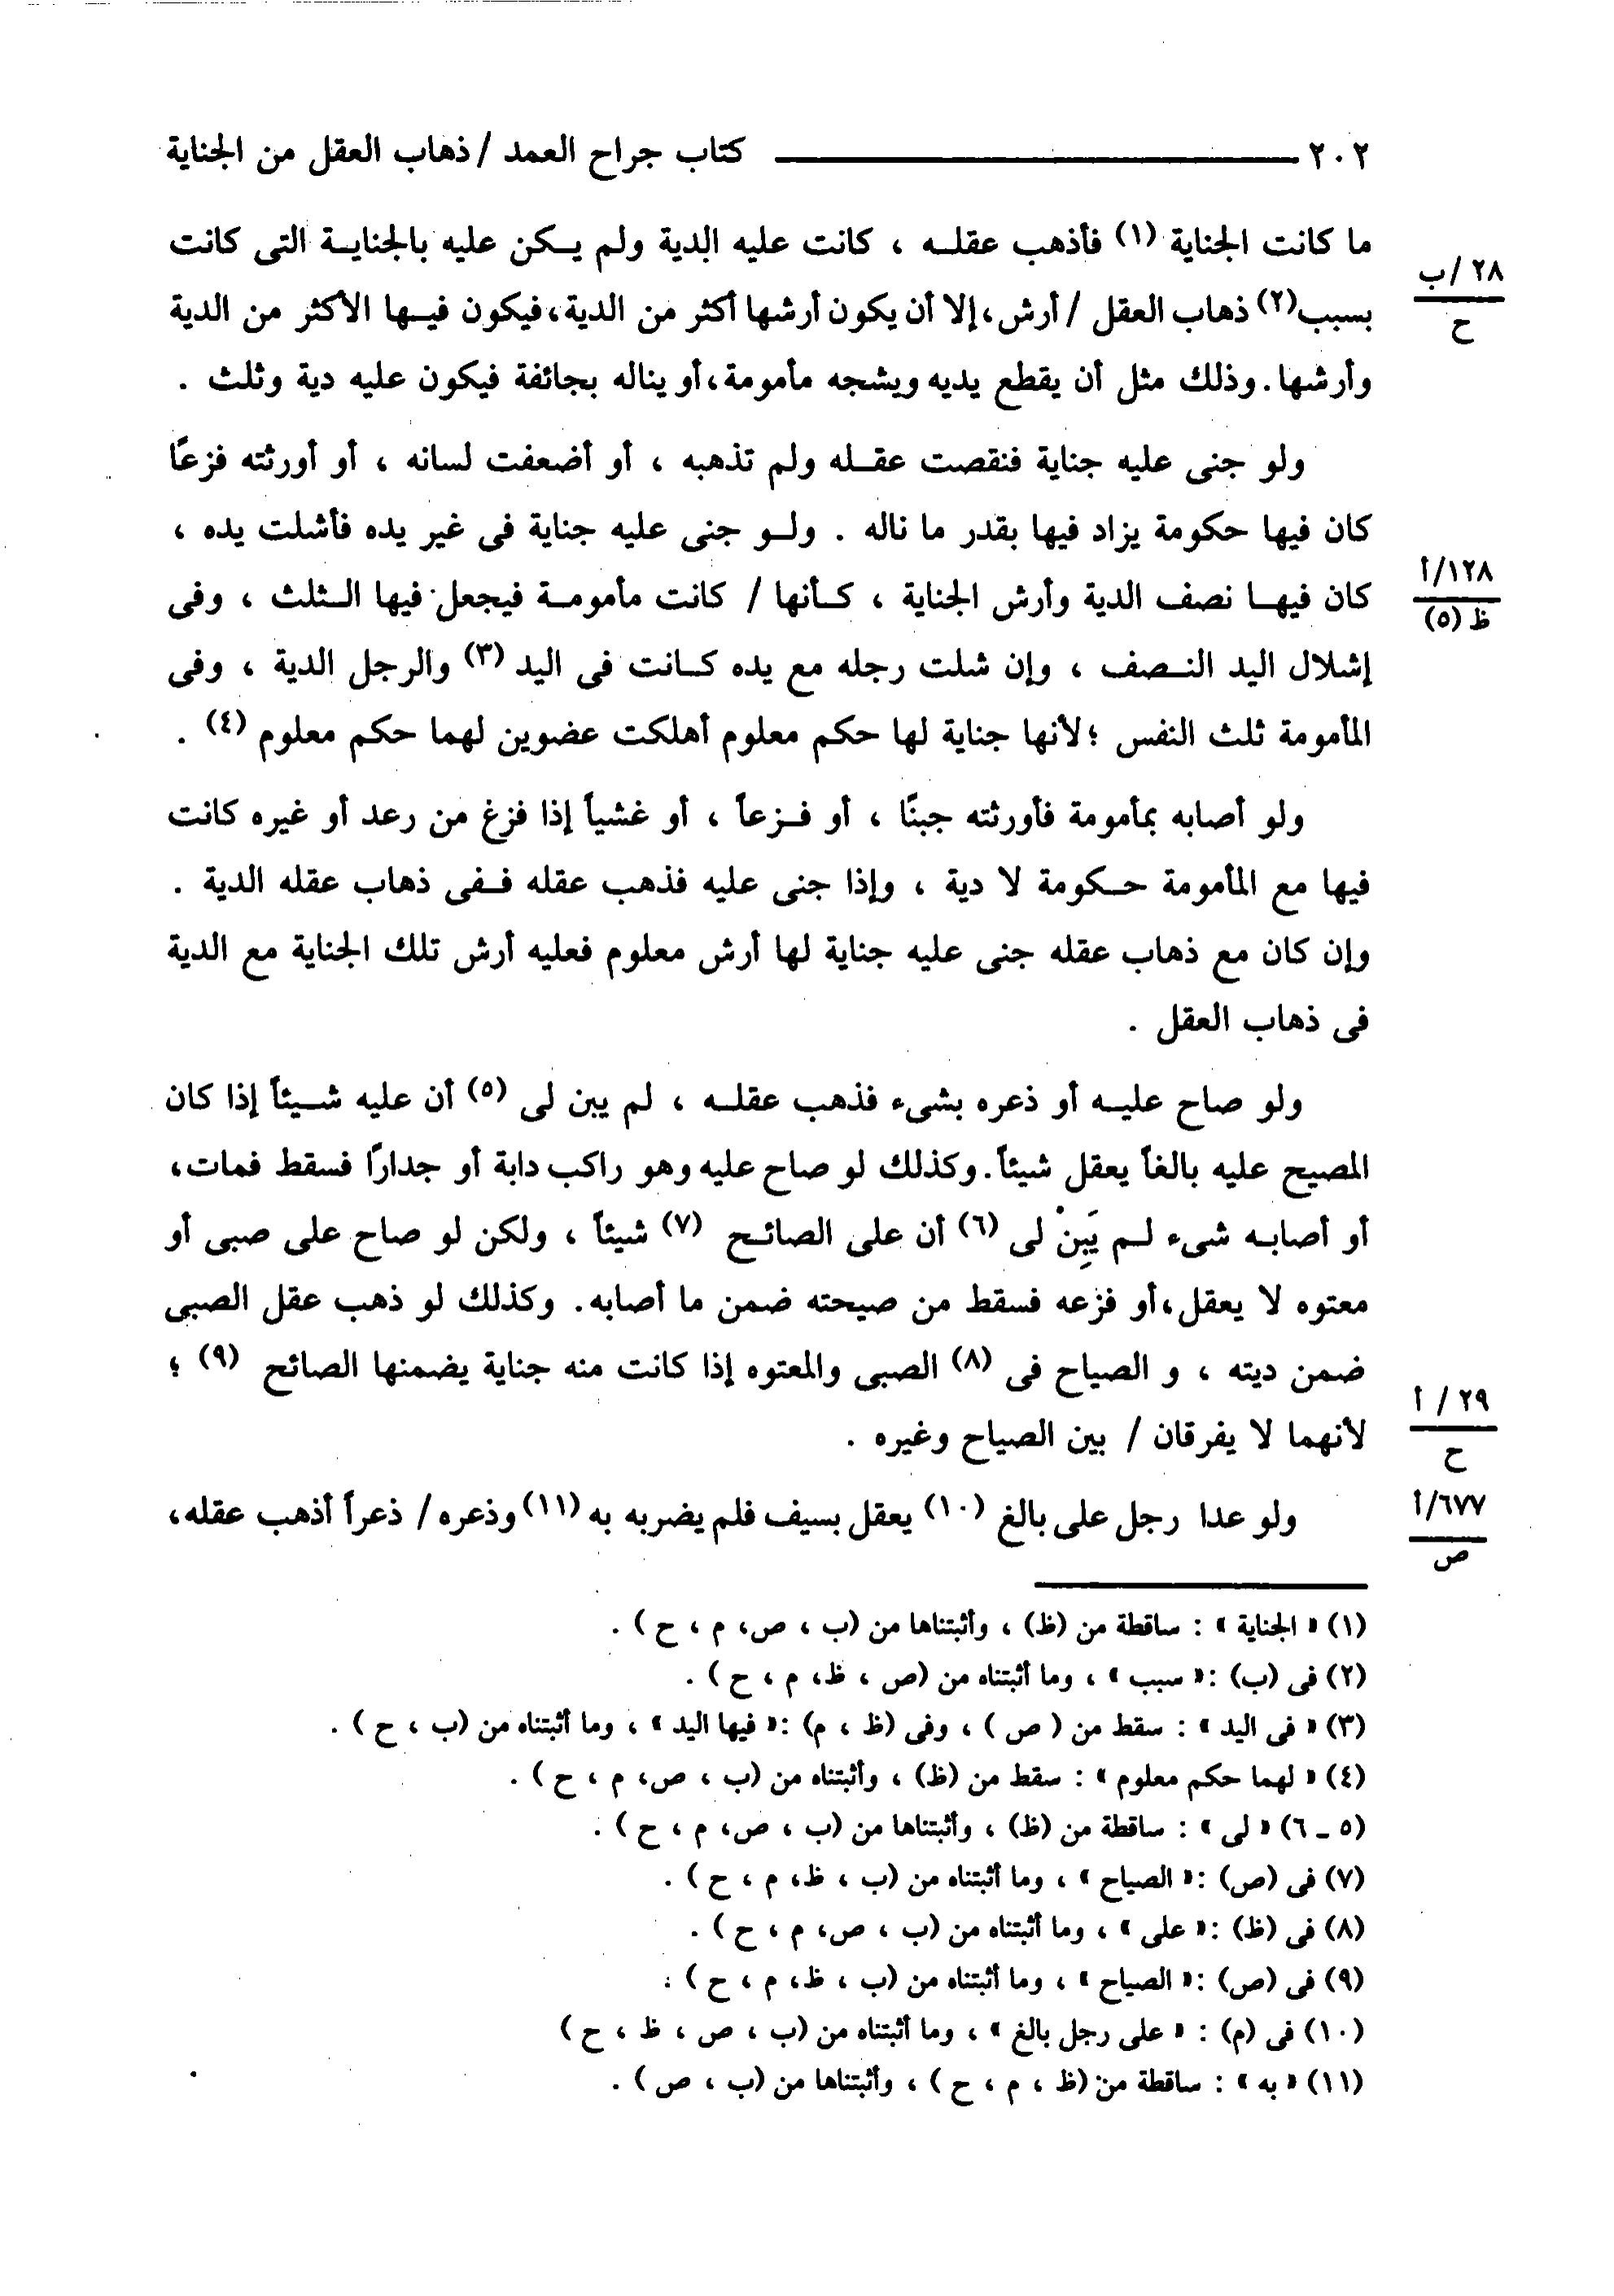 ٢٠٢ ـــــــــــــ كتاب جراح العمد / ذهاب العقل من الجناية
ما كانت الجناية (١) فأذهب عقلـــه ، كانت عليه الدية ولم يــكن عليه بالجنايــة التى كانت
٢٨/ب
ح
بسبب(٢) ذهاب العقل / أرش،إلا أن يكون أرشها أكثر من الدية،فيكون فيــها الأكثر من الدية
وأرشها.وذلك مثل أن يقطع يديه ويشجه مأمومة،أو يناله بجائفة فيكون عليه دية وثلث .
ولو جنى عليه جناية فنقصت عقــله ولم تذهبه ، أو أضعفت لسانه ، أو أورثته فزعًا
كان فيها حكومة يزاد فيها بقدر ما ناله . ولــو جنى عليه جناية فى غير يده فأشلت يده ،
١٢٨/أ
ظ (٥)
كان فيهــا نصف الدية وأرش الجناية ، كــأنها / كانت مأمومــة فيجعل فيها الــثلث ، وفى
إشلال اليد النــصف ، وإن شلت رجله مع يده كــانت فى اليد (٣) والرجل الدية ، وفى
المأمومة ثلث النفس ؛لأنها جناية لها حكم معلوم أهلكت عضوين لهما حكم معلوم (٤) .
ولو أصابه بمأمومة فأورثته جبنًا ، أو فــزعاً ، أو غشياً إذا فزغ من رعد أو غيره كانت
فيها مع المأمومة حــكومة لا دية ، وإذا جنى عليه فذهب عقله فــفى ذهاب عقله الدية .
وإن كان مع ذهاب عقله جنى عليه جناية لها أرش معلوم فعليه أرش تلك الجناية مع الدية
فى ذهاب العقل .
ولو صاح عليــه أو ذعره بشىء فذهب عقلــه ، لم يبن لى (٥) أن عليه شــيئاً إذا كان
المصيح عليه بالغاً يعقل شيئاً.وكذلك لو صاح عليه وهو راكب دابة أو جدارًا فسقط فمات،
أو أصابــه شىء لــم يَبِنْ لى (٦) أن على الصائــح (٧) شيئاً ، ولكن لو صاح على صبى أو
معتوه لا يعقل،أو فزعه فسقط من صيحته ضمن ما أصابه. وكذلك لو ذهب عقل الصبى
ضمن ديته ، و الصياح فى (٨) الصبى والمعتوه إذا كانت منه جناية يضمنها الصائح (٩) ؛
٢٩ / أ
ح
لأنهما لا يفرقان / بين الصياح وغيره .
ولو عدا رجل على بالغ (١٠) يعقل بسيف فلم يضربه به (١١) وذعره / ذعراً أذهب عقله،
٦٧٧/أ
ص
(١) « الجناية » : ساقطة من (ظ) ، وأثبتناها من (ب ، ص، م ، ح ) .
(٢) فى (ب) :« سبب » ، وما أثبتناه من (ص ، ظ، م ، ح ) .
(٣) « فى اليد » : سقط من ( ص ) ، وفى (ظ ، م) :« فيها اليد » ، وما أثبتناه من (ب ، ح ) .
(٤) « لهما حكم معلوم » : سقط من (ظ) ، وأثبتناه من (ب ، ص، م ، ح ) .
(٥ ـ ٦) « لى » : ساقطة من (ظ) ، وأثبتناها من (ب ، ص، م ، ح ) .
(٧) فى (ص) :« الصياح » ، وما أثبتناه من (ب ، ظ، م ، ح ) .
(٨) فى (ظ) :« على » ، وما أثبتناه من (ب ، ص، م ، ح ) .
(٩) فى (ص) :« الصياح » ، وما أثبتناه من (ب ، ظ، م ، ح ) .
(١٠) فى (م) : « على رجل بالغ » ، وما أثبتناه من (ب ، ص ، ظ ، ح )
(١١) « به » : ساقطة من (ظ ، م ، ح ) ، وأثبتناها من (ب ، ص ) .